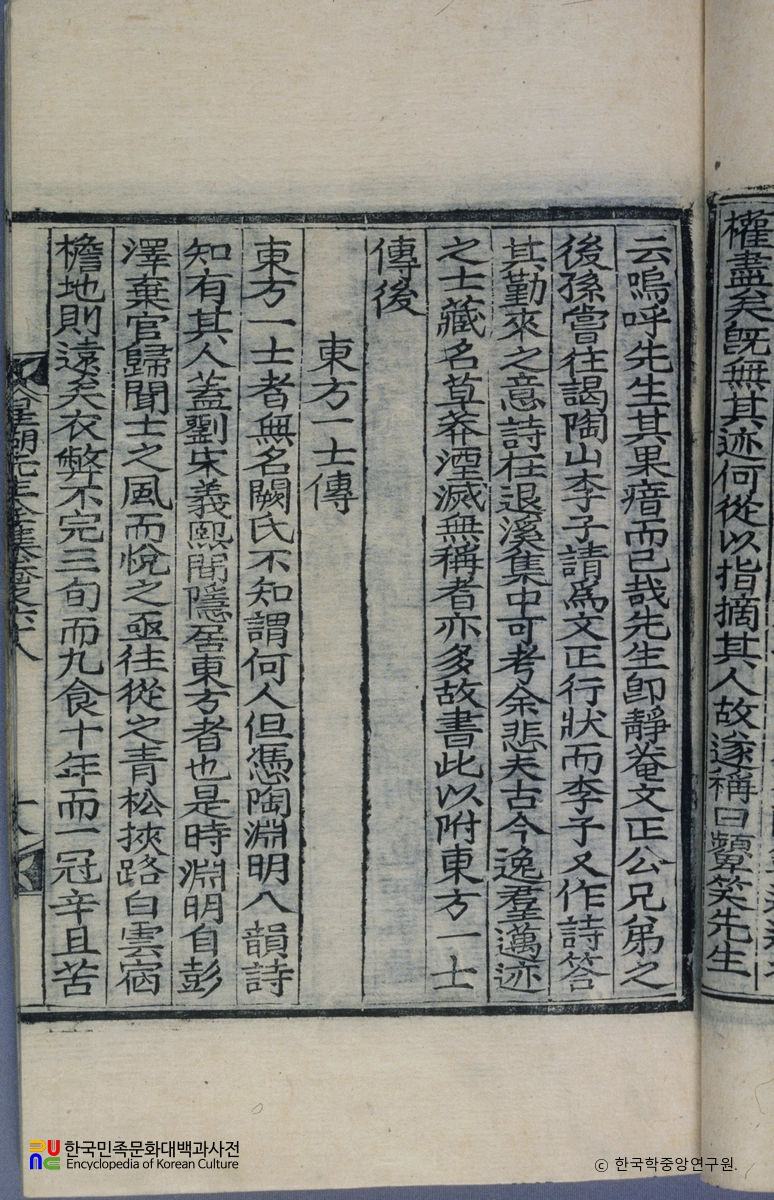 權盡矣旣無其迹何從以指摘其人故遂稱曰顰笑先生
云嗚呼先生其果瘖而已哉先生卽靜菴文正公兄弟之
後孫嘗往謁陶山李子請爲文正行狀而李子又作詩答
其勤來之意詩在退溪集中可考余悲夫古今逸羣邁迹
之士藏名草莽湮滅無稱者亦多故書此以附東方一士
傳後
東方一士傳
東方一士者無名闕氏不知謂何人但憑陶淵明八韻詩
知有其人蓋劉宋義熙間隱居東方者也是時淵明自彭
澤棄官歸聞士之風而悅之亟往從之青松挾路白雲宿
檐地則遠矣衣弊不完三旬而九食十年而一冠辛且苦
星湖先生全集卷之六十八
十八
한국민족문화대백과사전
Encyclopedia of Korean Culture
ⓒ 한국학중앙연구원.